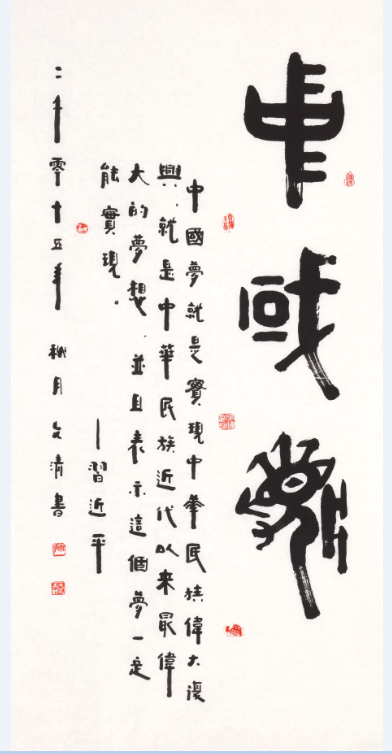 中國夢
中國夢就是實現中華民族偉大復
興、就是中華民族近代以來最偉
大的夢想、並且表示這個夢一定
能實現。
—習近平
二千零十五年 秋月 文清書